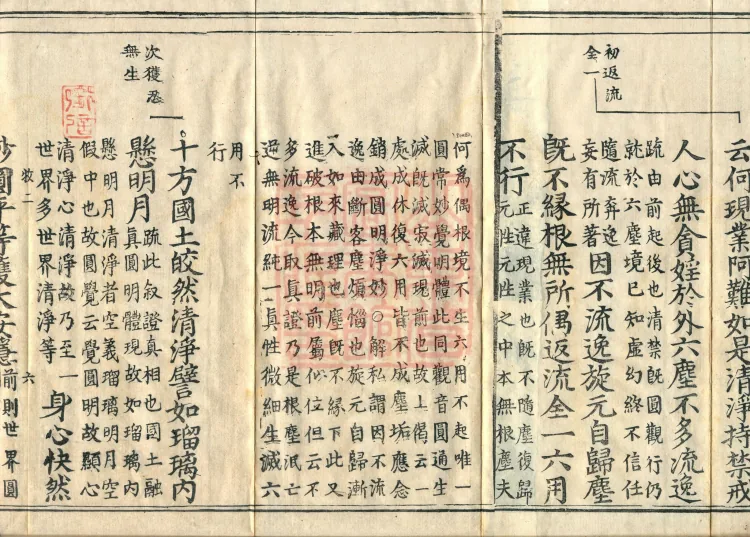 初返流
全一
云何現業阿難如是清淨持禁戒
人心無貪婬於外六塵不多流逸
疏由前起後也清禁既圓觀行仍
就於六塵境已知虛幻終不信任
隨流奔逸
妄有所著
因不流逸旋元自歸塵
既不緣根無所偶返流全一六用
不行
正違現業也既不隨塵復歸
元性元性之中本無根塵夫
何為偶根境不生六用不起唯一
圓常妙覺明體此同觀音圓通生
滅既滅寂滅現前也故上偈云一
處成休復六用皆不成塵垢應念
銷成圓明淨妙○解私謂因不流
逸由斷客塵煩惱也旋元自歸漸
入如來藏理也塵既不緣下此又
進破根本無明前屬似位但云不
多流逸今取真證乃是根塵泯亡
無明流純一真性微細生滅六
用不
行
次獲忍
無生
十方國土皎然清淨譬如瑠璃內
懸明月
疏此叙證真相也國土融
真圓明體現故如瑠璃內
懸明月清淨者空義瑠璃明月空
假中也故圓覺云覺圓明故顯心
清淨心清淨故乃至一
世界多世界清淨等
身心快然
妙圓平等獲大安隱
前則世界圓
六